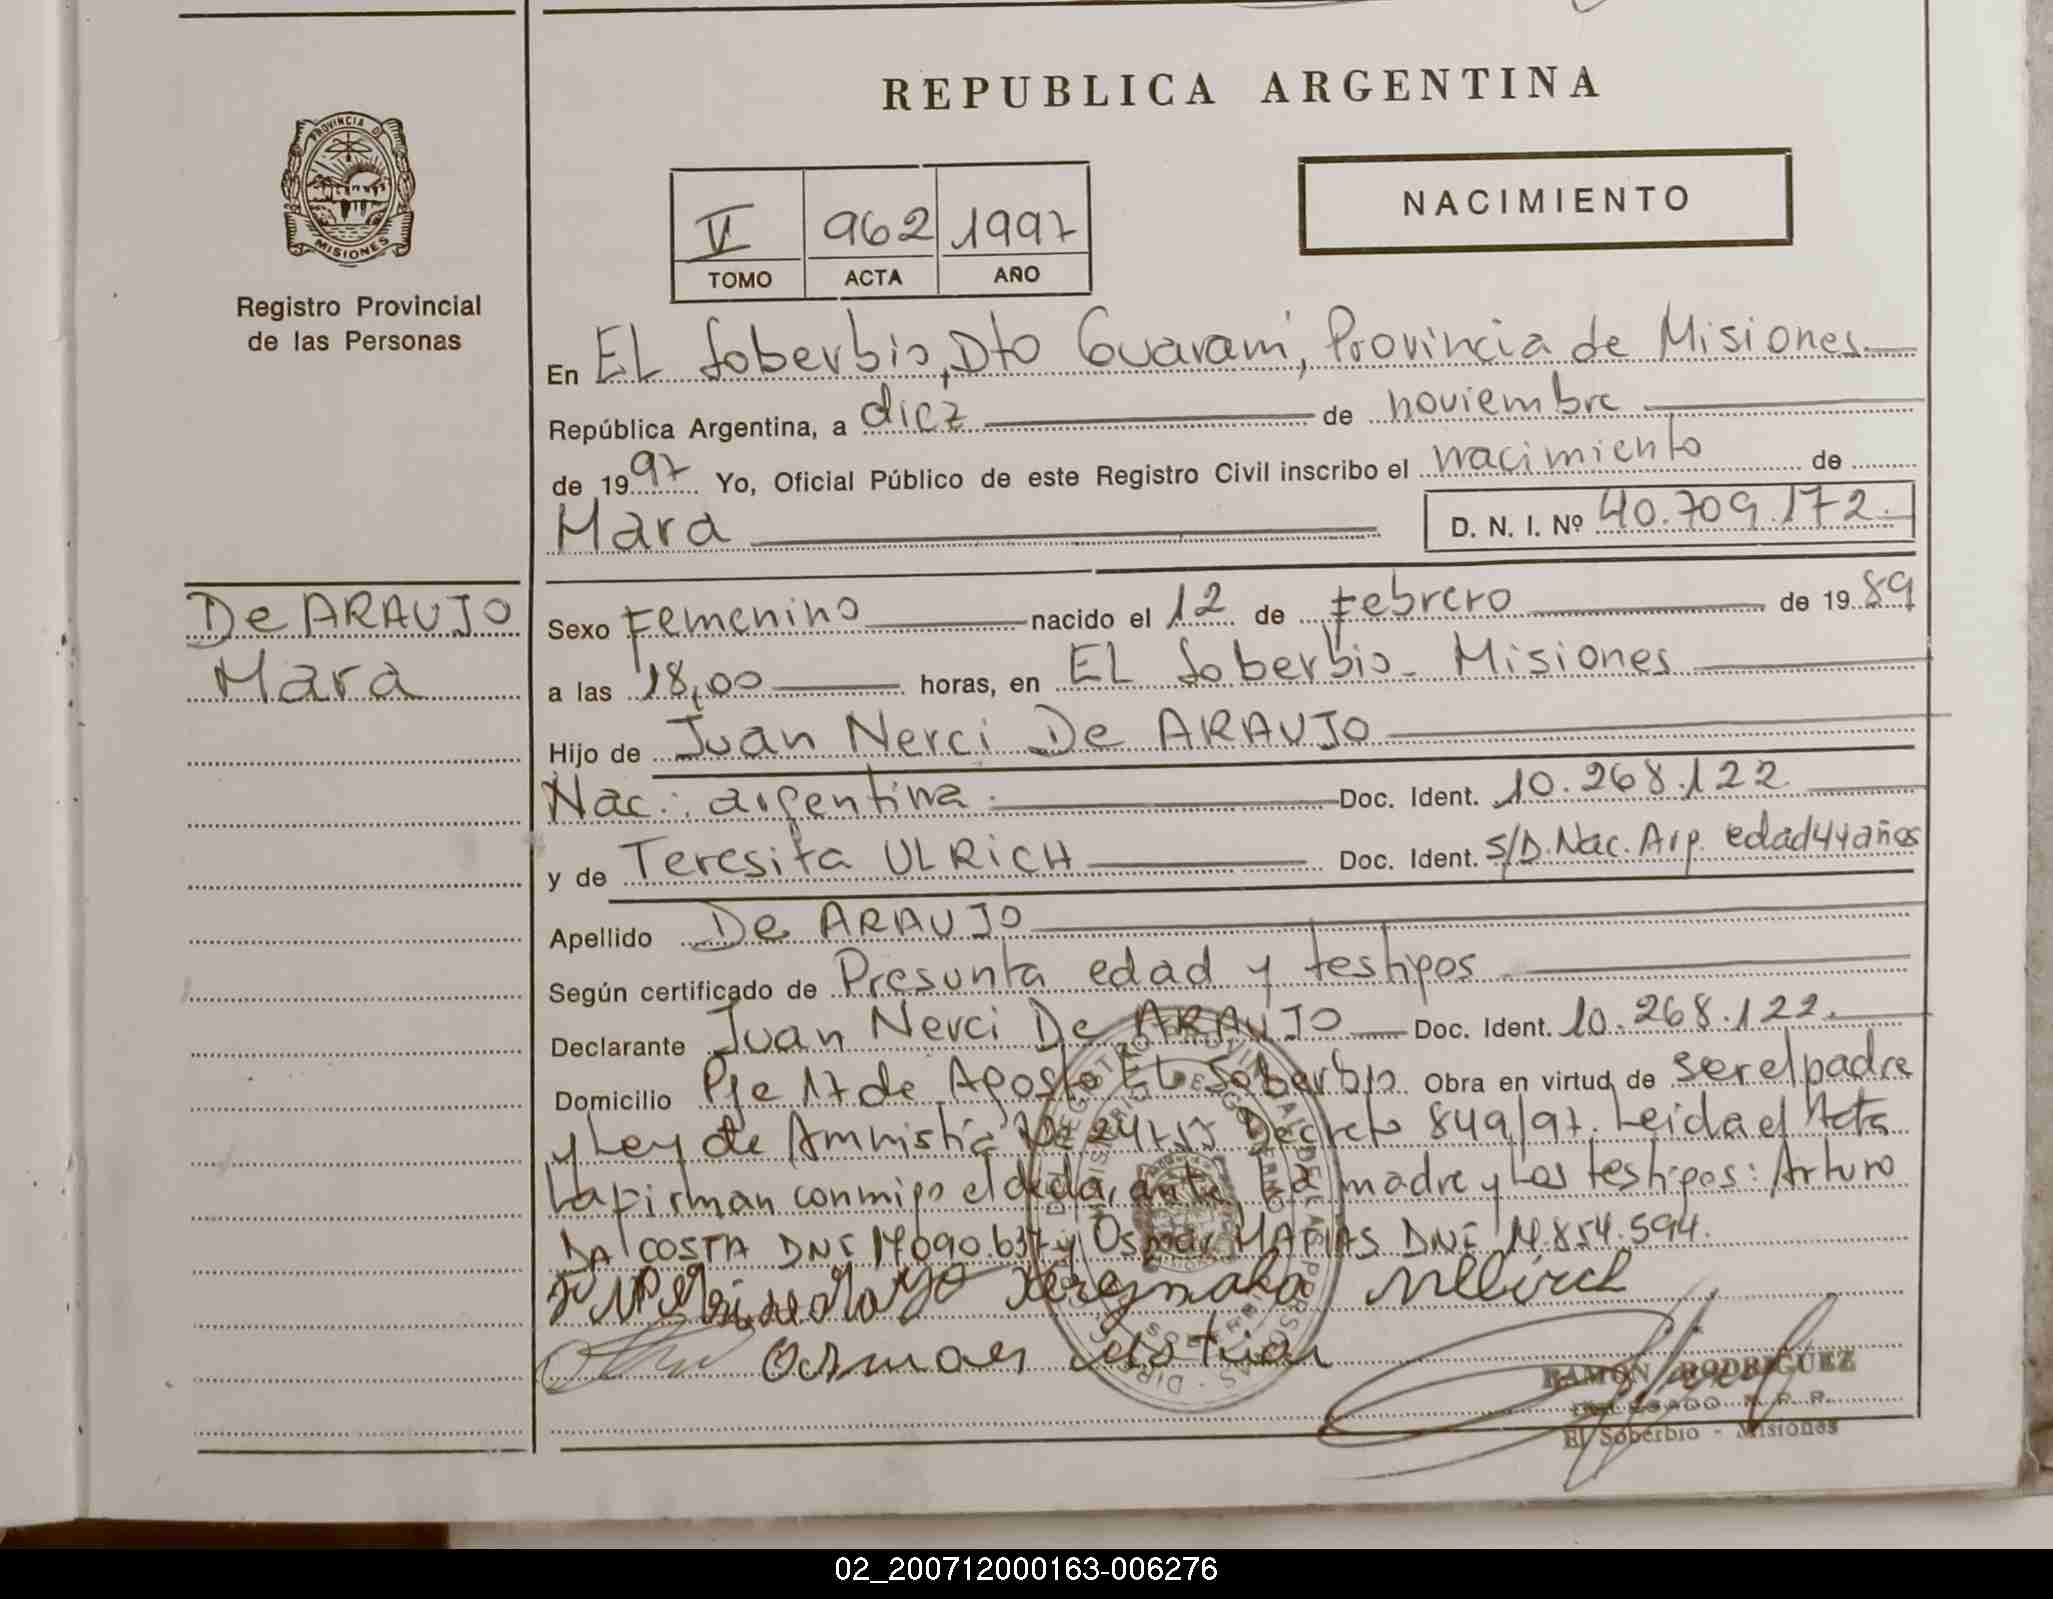 REPUBLICA ARGENTINA
PROVINCIA DE
MISIONES
Registro Provincial
de las Personas
V 962 1997
TOMO ACTA AÑO
NACIMIENTO
En EL Soberbio, Dto Guaraní, Provincia de Misiones
República Argentina, a diez de noviembre
de 1997 Yo, Oficial Público de este Registro Civil inscribo el nacimiento de
Mara D. N. I. Nº 40.709.172.
De ARAUJO
Mara
Sexo Femenino nacido el 12 de Febrero de 1989
a las 18,00 horas, en EL Soberbio - Misiones
Hijo de Juan Nerci De ARAUJO
Nac.: argentina. Doc. Ident. 10.268.122
y de Teresita ULRICH Doc. Ident. S/D. Nac. Arg. edad 44 años
Apellido De ARAUJO
Según certificado de Presunta edad y testigos
Declarante Juan Nerci De ARAUJO Doc. Ident. 10.268.122.
Domicilio Pje 17 de Agosto EL Soberbio Obra en virtud de ser el padre
y Ley de Amnistía Nº Decreto 849/97. Leida el Acta
La firman conmigo el declarante La madre y Los testigos: Arturo
DA COSTA DNI 17.090.637 y Osmar DNI 14.854.594.
RAMON RODRIGUEZ
DELEGADO R. P. P.
El Soberbio - Misiones
02_200712000163-006276